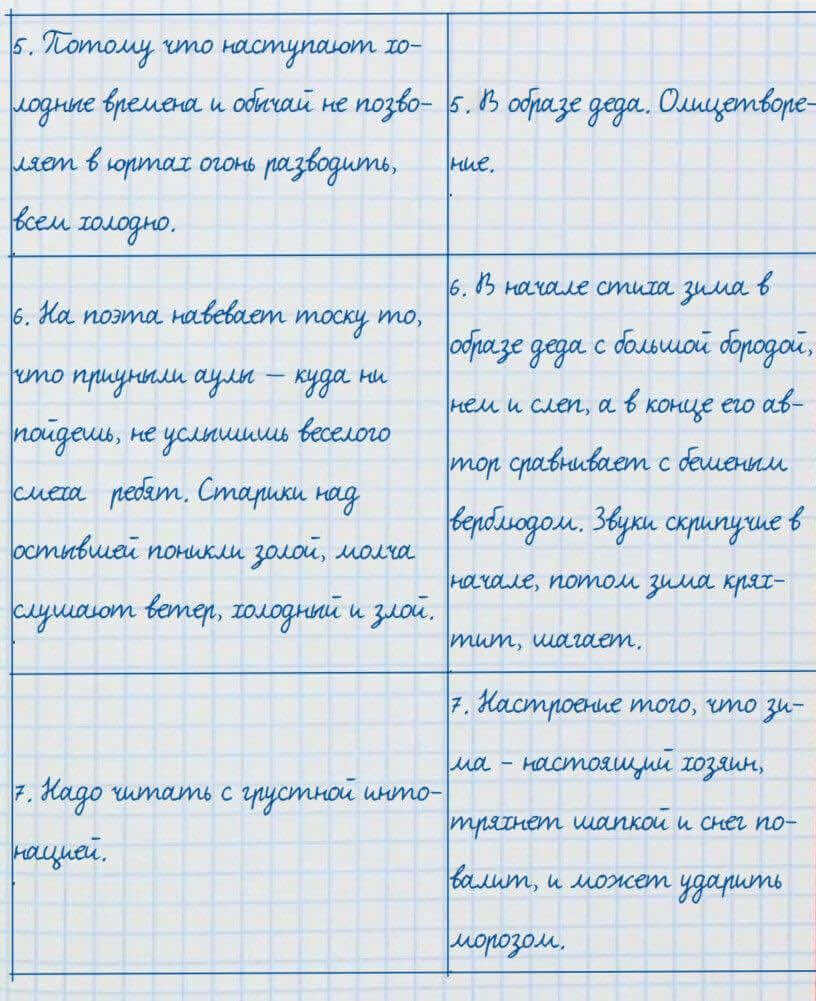 5. Потому что наступают хо-
лодные времена и обычай не позво-
ляет в юртах огонь разводить,
всем холодно.
5. В образе деда. Олицетворе-
ние.
6. На поэта навевает тоску то,
что приуныли аулы – куда ни
пойдешь, не услышишь веселого
смеха ребят. Старики над
остывшей поникли золой, молча
слушают ветер, холодный и злой.
6. В начале стиха зима в
образе деда с большой бородой,
нем и слеп, а в конце его ав-
тор сравнивает с бешеным
верблюдом. Звуки скрипучие в
начале, потом зима крях-
тит, шагает.
7. Надо читать с грустной инто-
нацией.
7. Настроение того, что зи-
ма – настоящий хозяин,
тряхнет шапкой и снег по-
валит, и может ударить
морозом.